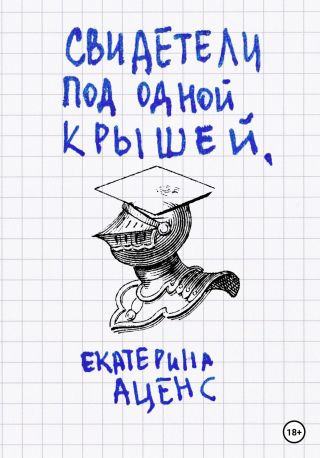 СВИДЕТЕЛИ
ПОД ОДНОЙ
КРЫШЕЙ.
ЕКАТЕРИНА
АЦЕНС
18+